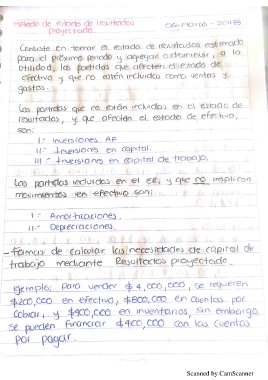 Método de estado de resultados
proyectado.
06-Marzo-2018
Consiste en tomar el estado de resultados estimado
para el próximo periodo y agregar o disminuir, a la
utilidad, las partidas que afecten el estado de
efectivo y que no estén incluidas como ventas y
gastos.
Las partidas que no están incluidas en el estado de
resultados, y que afectan el estado de efectivo,
son:
I.- Inversiones AF
II.- Inversiones en capital.
III.- Inversiones en capital de trabajo.
Las partidas incluidas en el ER, y que no implican
movimientos en efectivo son:
I.- Amortizaciones.
II.- Depreciaciones.
- Formas de calcular las necesidades de capital de
trabajo mediante Resultados proyectado.
Ejemplo: Para vender $4,000,000, se requieren
$200,000 en efectivo, $800,000 en cuentas por
cobrar, y $900,000 en inventarios, sin embargo
se pueden financiar $400,000 con las cuentas
por pagar.
Scanned by CamScanner